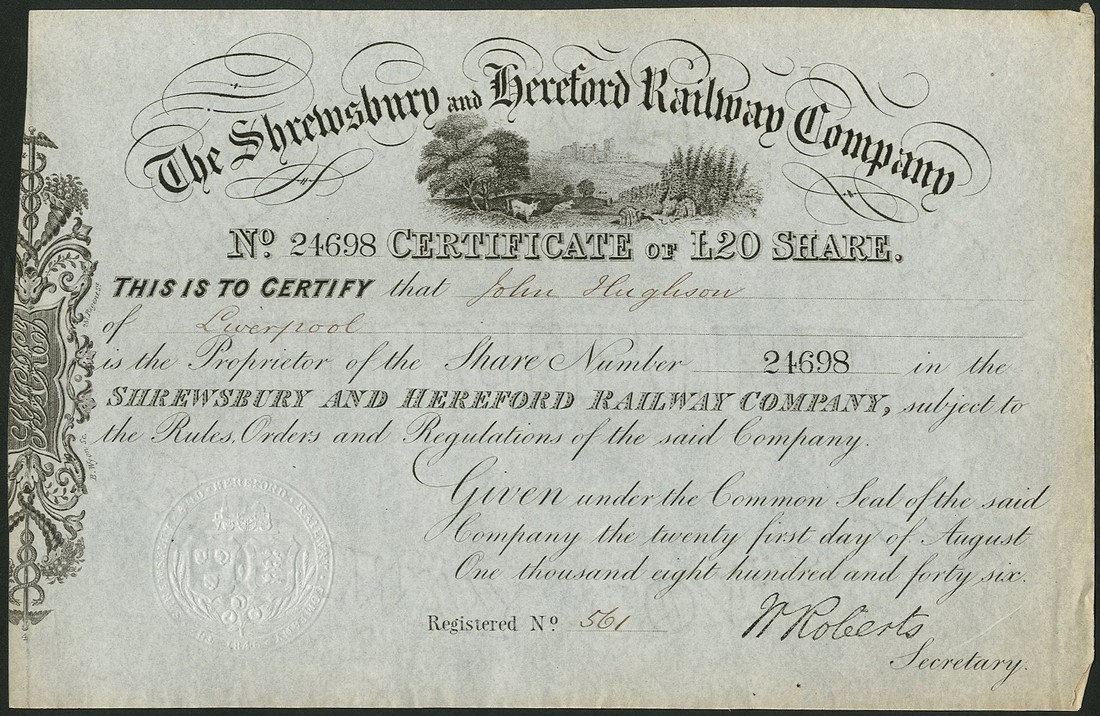 The Shrewsbury and Hereford Railway Company
No. 24698 CERTIFICATE OF L20 SHARE.
THIS IS TO CERTIFY that John Hughson
of Liverpool
is the Proprietor of the Share Number 24698 in the
SHREWSBURY AND HEREFORD RAILWAY COMPANY, subject to
the Rules, Orders and Regulations of the said Company.
Given under the Common Seal of the said
Company the twenty first day of August
One thousand eight hundred and forty six.
Registered No. 561
W Roberts
Secretary.
SHREWSBURY AND HEREFORD RAILWAY